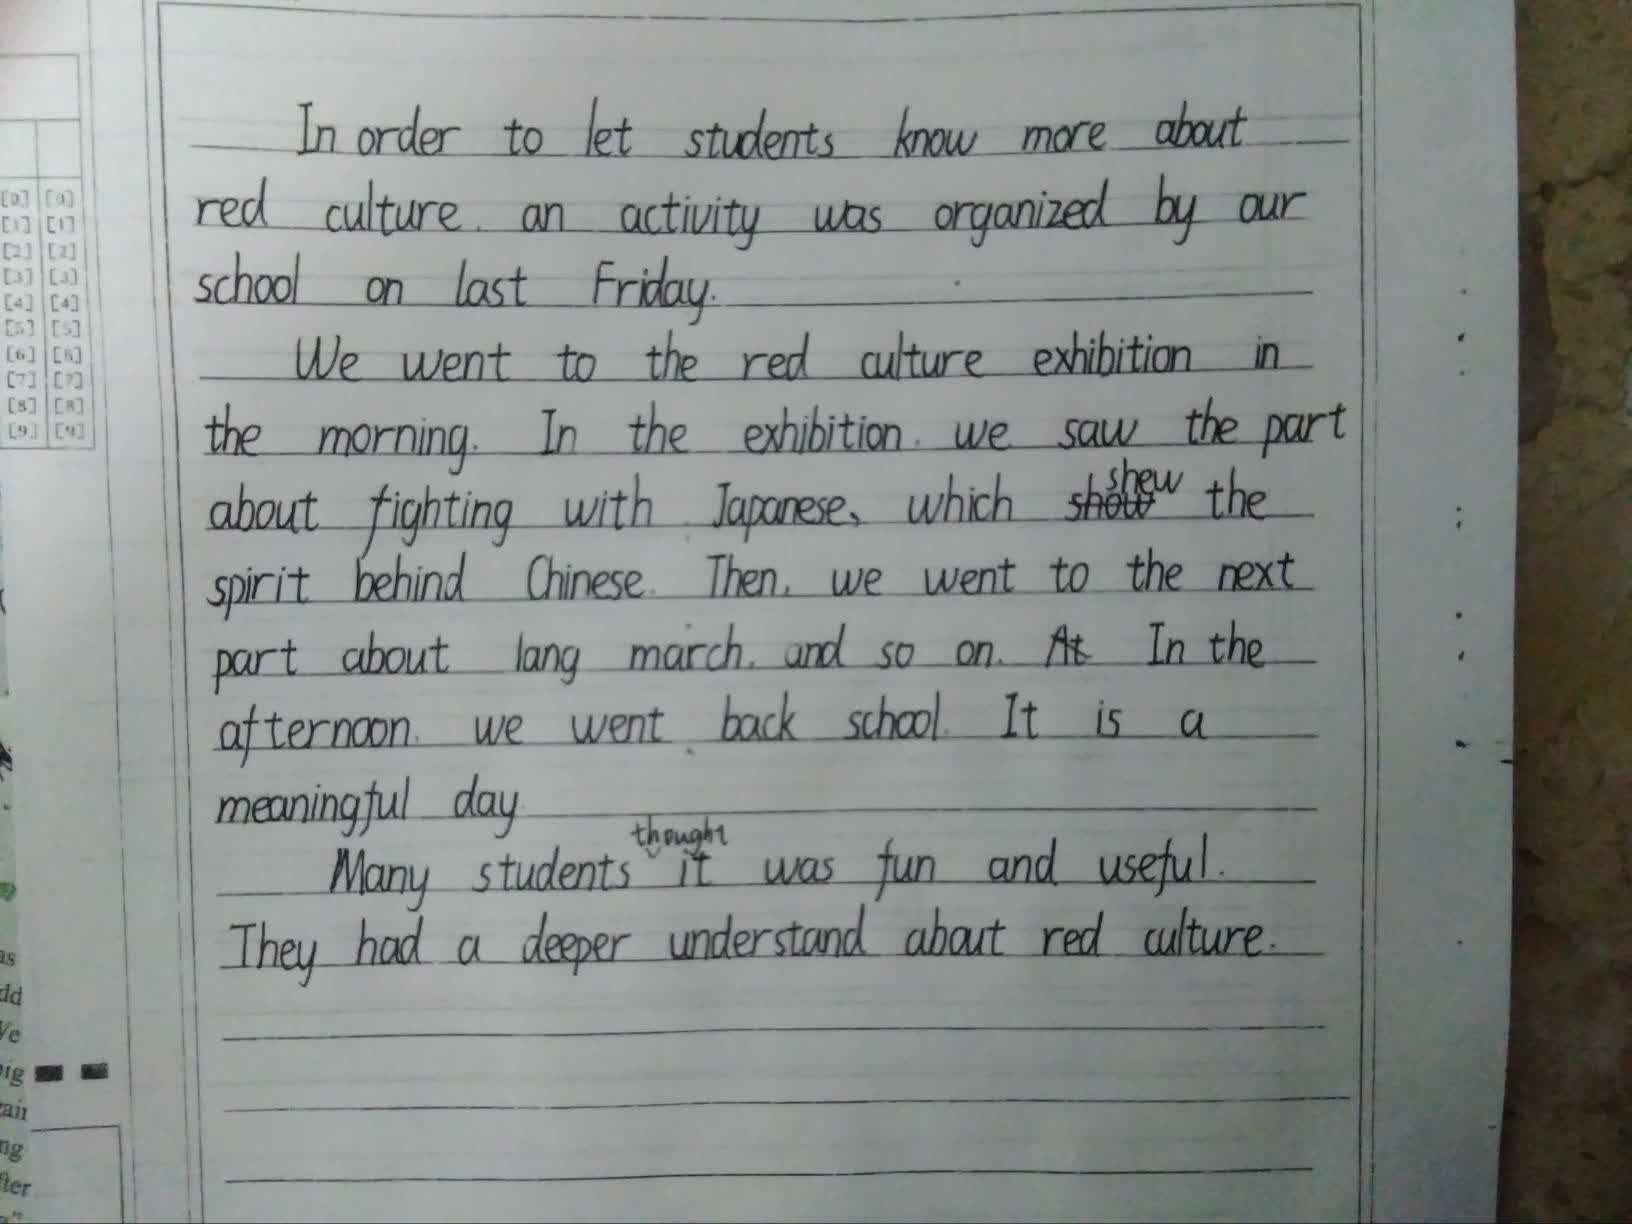 In order to let students know more about
red culture. an activity was organized by our
school on last Friday.
We went to the red culture exhibition in
the morning. In the exhibition. we saw the part
about fighting with Japanese, which show shew the
spirit behind Chinese. Then. we went to the next
part about lang march. and so on. At In the
afternoon. we went back school. It is a
meaningful day
Many students thought it was fun and useful.
They had a deeper understand about red culture.
[0] [0]
[1] [1]
[2] [2]
[3] [3]
[4] [4]
[5] [5]
[6] [6]
[7] [7]
[8] [8]
[9] [9]